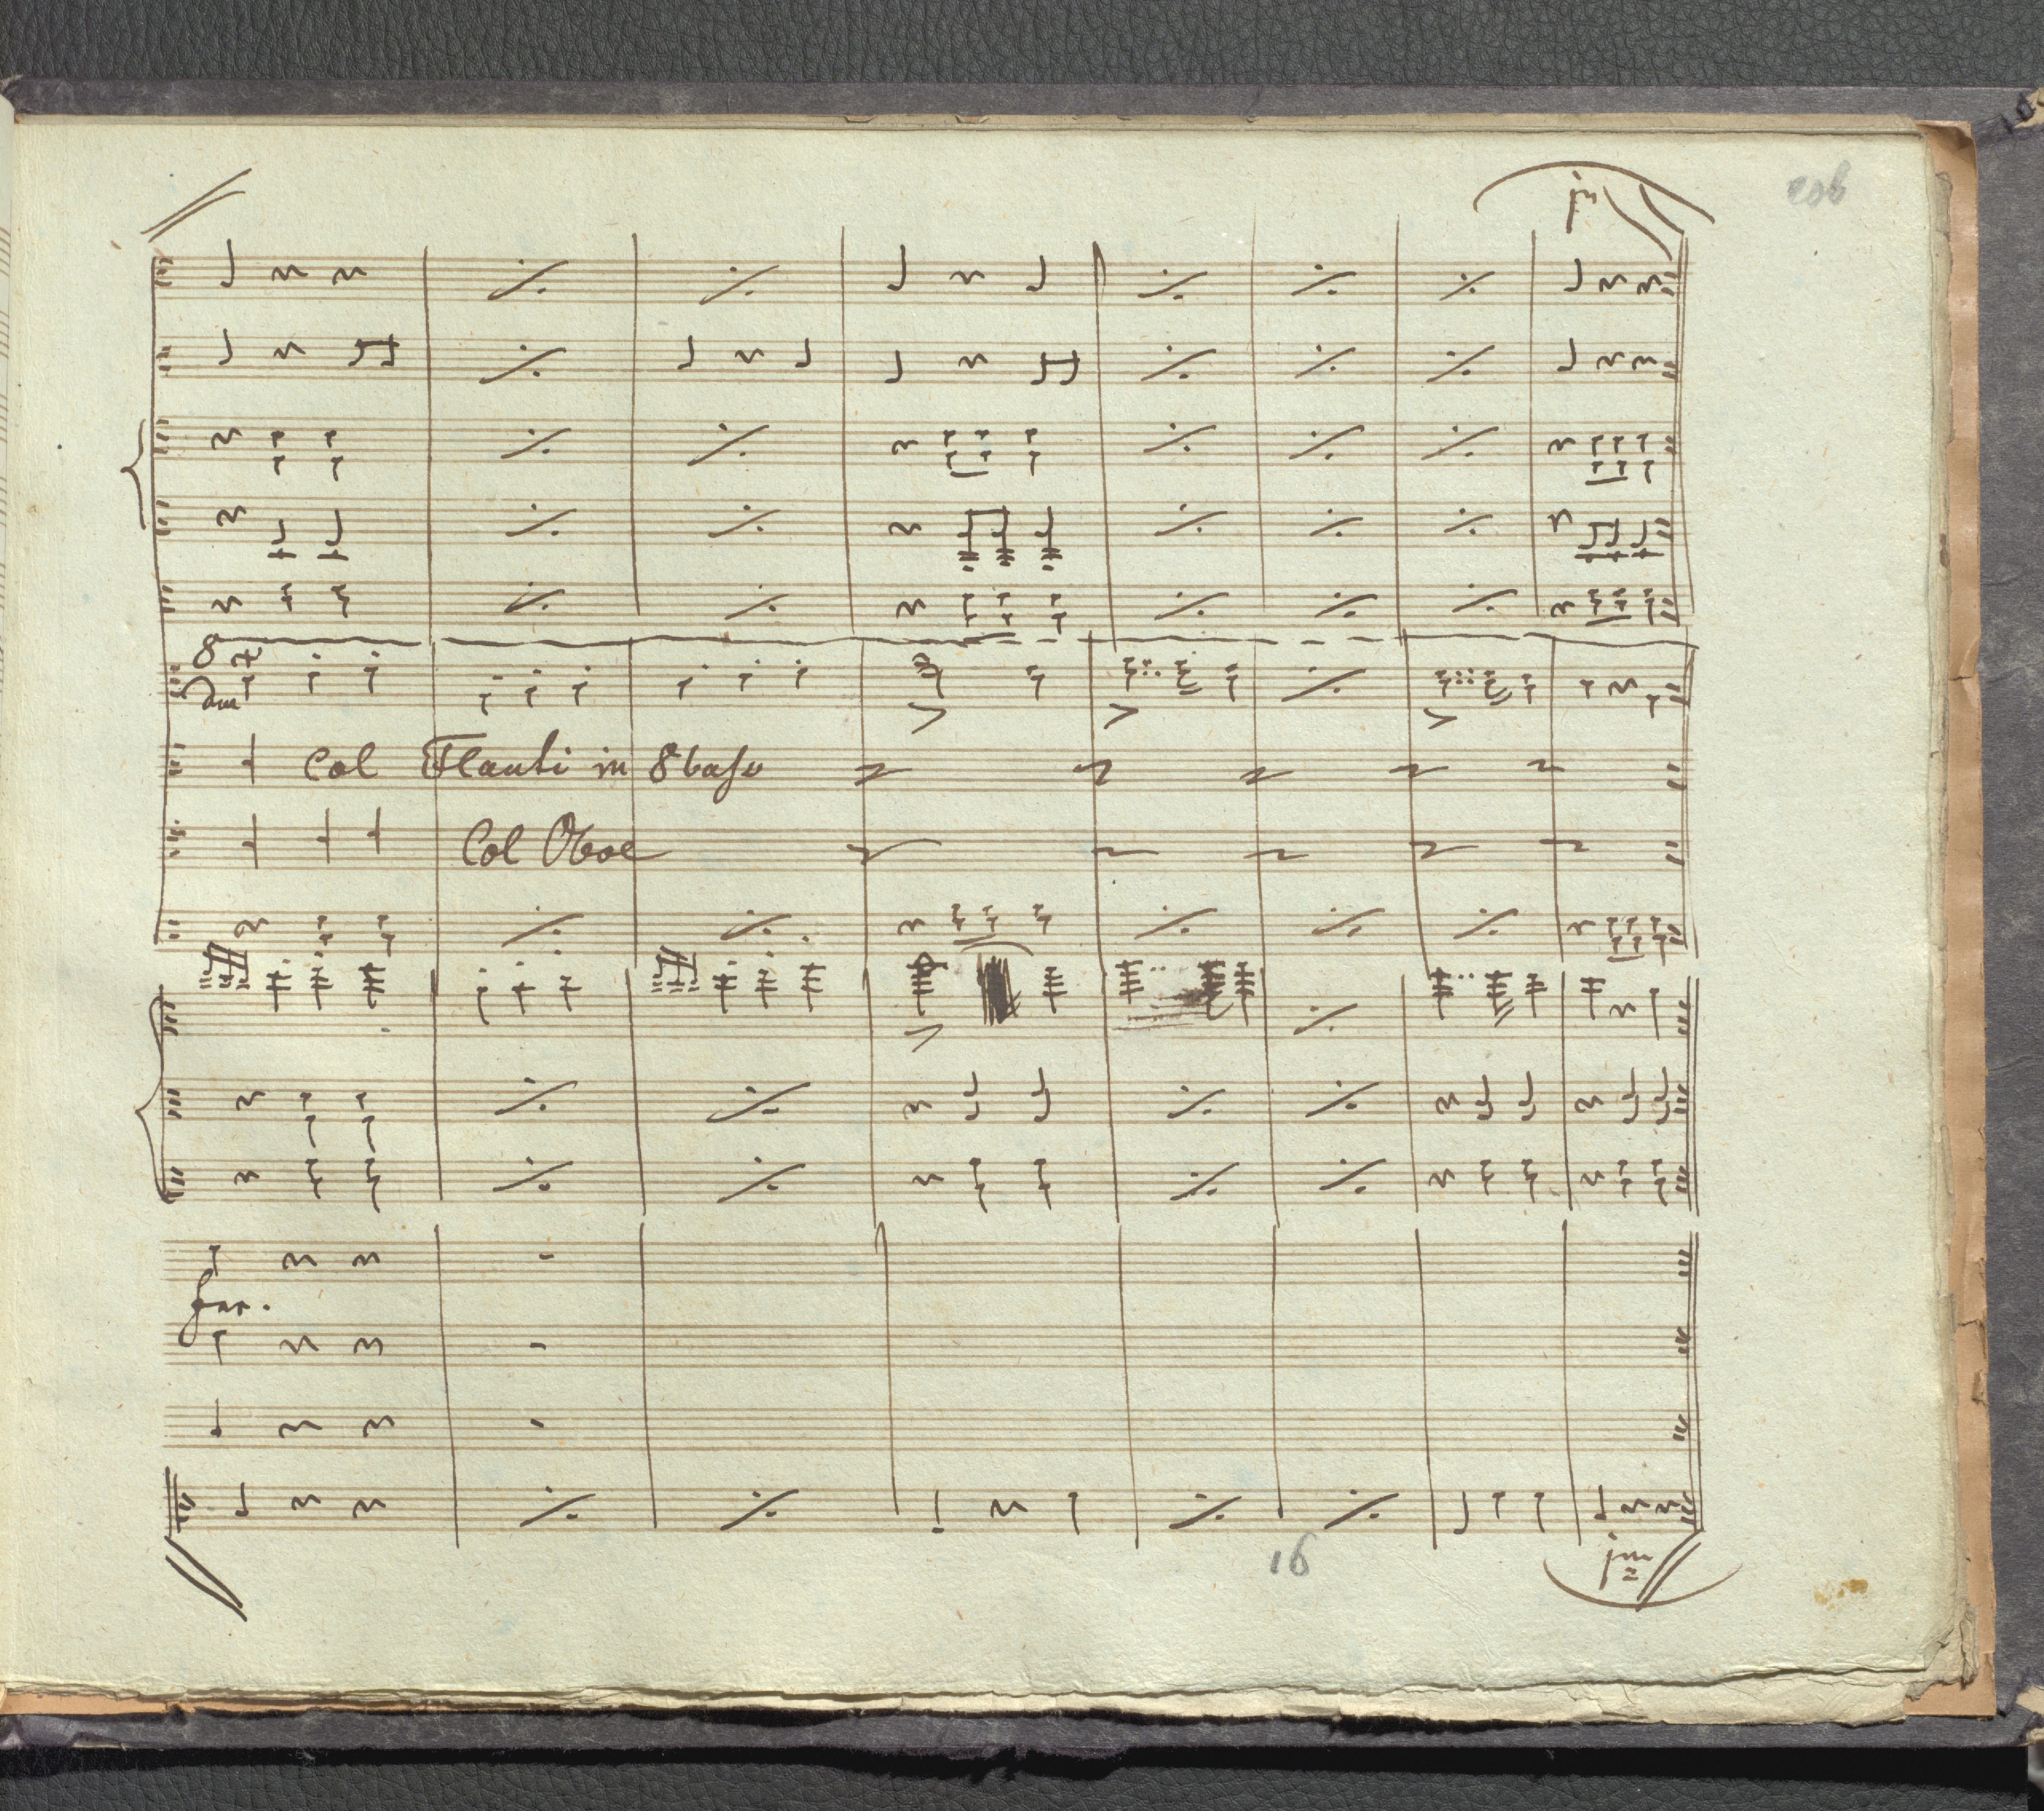 206
8
Col Flauti in 8 basso
Col Oboe
for.
16